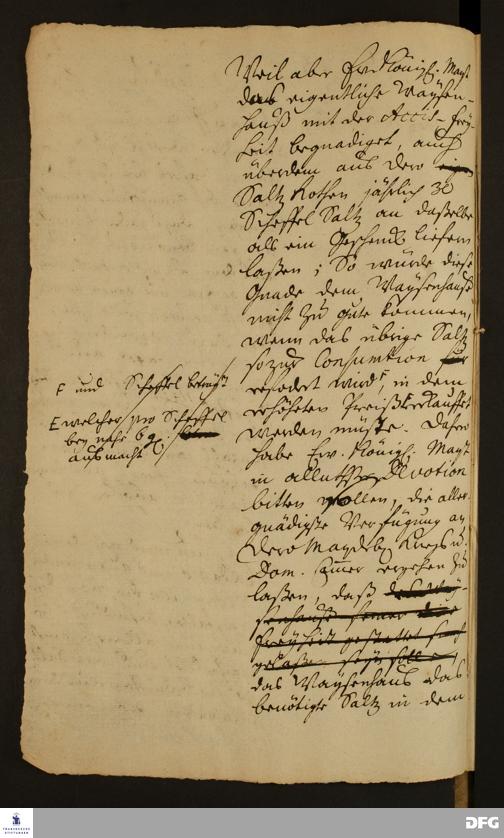 Weil aber Ew. Königl. Mayt
das eigentliche Waysen-
hauß mit der Accis-Frey-
heit begnadiget, auch
überdem aus dero
Saltz Kothen jährlich 30
Scheffel Saltz an daßelbe
als ein Geschenck liefern
laßen; So würde diese
Gnade dem Waysenhause
nicht zu gute kommen,
wenn das übrige Saltz
so zur Consumtion
erfodert wird F, in dem
erhöheten Preiße E erkauffet
werden müste. Daher
habe Ew. Königl. Mayt
in Devotion
bitten wollen, die aller-
gnädigste Verfügung an
Dero Magdeb. Kriegs u.
Dom. Camer ergehen zu
laßen, daß des Way-
senhauses
Freyheit gestattet
gelaßen seyn solle,
das Waysenhaus das
benötigte Saltz in dem
F und Scheffel beträgt
E welcher pro Scheffel
bey nahe 6 g.
ausmacht
FRANCKESCHE
STIFTUNGEN
DFG